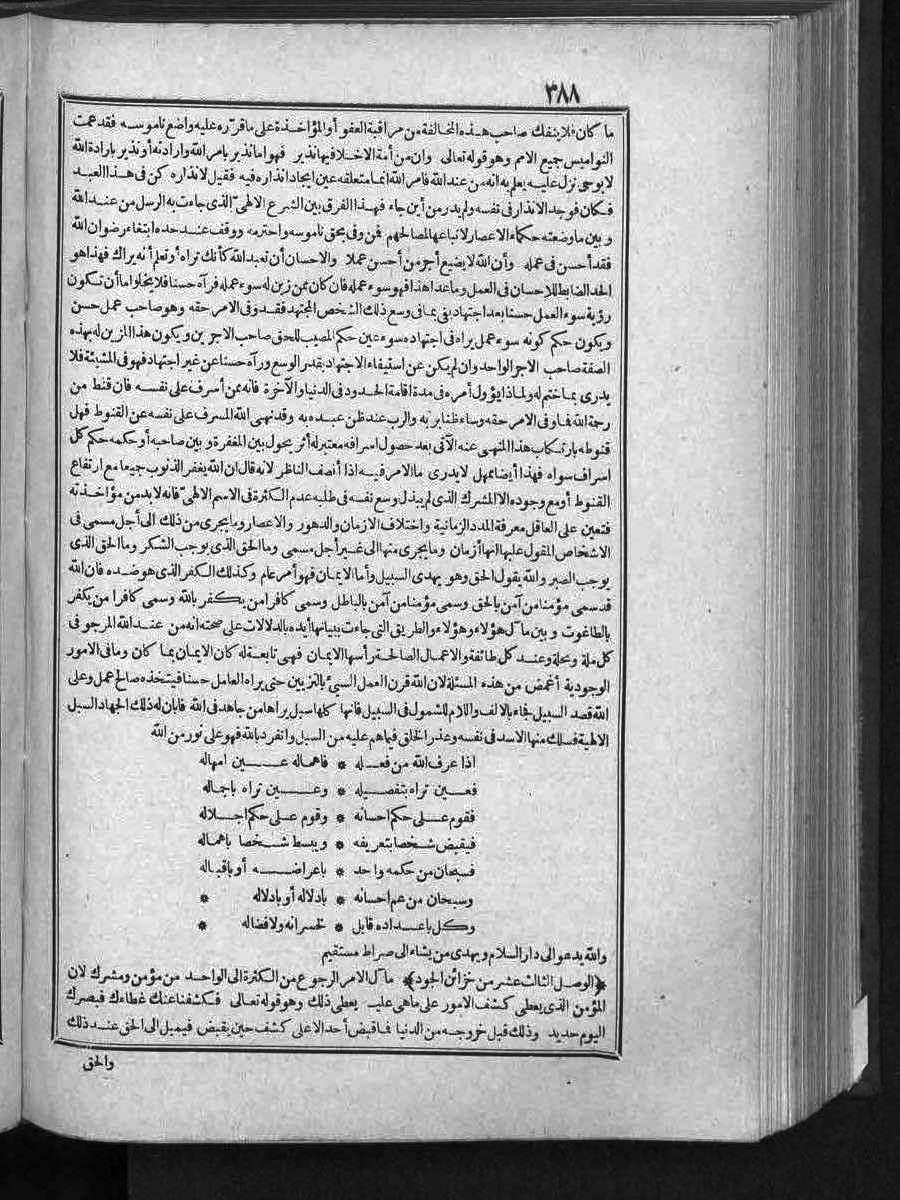 ٣٨٨
ما كان فلا ينفك صاحب هذه المخالفة من مراقبة العفو أو المؤاخذة على ما قرّره عليه واضع ناموسه فقد عمت
النواميس جميع الامم وهو قوله تعالى وان من أمة الا خلا فيها نذير فهو اما نذير بامر الله وارادته أو نذير بارادة الله
لا بوحي نزل عليه يعلم به انه من عند الله فامر الله انما متعلقه عين ايجاد انذاره فيه فقيل لانذاره كن في هذا العبد
فكان فوجد الانذار في نفسه ولم يدر من أين جاء فهذا الفرق بين الشرع الالهيّ الذي جاءت به الرسل من عند الله
وبين ما وضعته حكماء الاعصار لاتباعها لمصالحهم فمن وفى بحق ناموسه واحترمه ووقف عند حده ابتغاء رضوان الله
فقد أحسن في عمله وأن الله لا يضيع أجر من أحسن عملا والاحسان أن تعبد الله كأنك تراه أو تعلم أنه يراك فهذا هو
الحد الضابط للاحسان في العمل وما عدا هذا فهو سوء عمله فان كان ممن زين له سوء عمله فرآه حسنا فلا يخلوا ما أن تكون
رؤية سوء العمل حسنا بعد اجتهاد يفي بما في وسع ذلك الشخص المجتهد فقد وفى الامر حقه وهو صاحب عمل حسن
ويكون حكم كونه سوء عمل يراه في اجتهاده سوء عين حكم المصيب للحق صاحب الاجرين ويكون هذا المزين له بهذه
الصفة صاحب الاجر الواحد وان لم يكن عن استيفاء الاجتهاد بقدر الوسع ورآه حسنا عن غير اجتهاد فهو في المشيئة فلا
يدرى بما ختم له ولماذا يؤول أمره في مدة اقامة الحدود في الدنيا والآخرة فانه ممن أسرف على نفسه فان قنط من
رحمة الله فما وفى الامر حقه وساء ظنا بربه والرب عند ظن عبده به وقد نهى الله المسرف على نفسه عن القنوط فهل
قنوطه بارتكاب هذا المنهي عنه الآتي بعد حصول اسرافه معتبر له أثر يحول بين المغفرة وبين صاحبه أو حكمه حكم كل
اسراف سواه فهذا أيضا مجهل لا يدرى ما الامر فيه اذا أنصف الناظر لانه قال ان الله يغفر الذنوب جميعا مع ارتفاع
القنوط أو مع وجوده الا المشرك الذي لم يبذل وسع نفسه في طلبه عدم الكثرة في الاسم الالهيّ فانه لا بد من مؤاخذته
فتعين على العاقل معرفة المدد الزمانية واختلاف الازمان والدهور والاعصار وما يجري من ذلك الى أجل مسمى في
الاشخاص المقول عليها انها أزمان وما يجري منها الى غير أجل مسمى وما الحق الذي يوجب الشكر وما الحق الذي
يوجب الصبر والله يقول الحق وهو يهدى السبيل وأما الايمان فهو أمر عام وكذلك الكفر الذي هو ضده فان الله
قد سمى مؤمنا من آمن بالحق وسمى مؤمنا من آمن بالباطل وسمى كافرا من يكفر بالله وسمى كافرا من يكفر
بالطاغوت وبين مآل هؤلاء وهؤلاء والطريق التي جاءت ببيانها أيده بالدلالات على صحته انه من عند الله المرجو في
كل ملة ونحلة وعند كل طائفة والاعمال الصالحة رأسها الايمان فهي تابعة له كان الايمان بما كان وما في الامور
الوجودية أغمض من هذه المسئلة لان الله قرن العمل السيئ بالتزيين حتى يراه العامل حسنا فيتخذه صالح عمل وعلى
الله قصد السبيل فجاء بالالف واللام للشمول في السبيل فانها كلها سبل يراها من جاهد في الله فابان له ذلك الجهاد السبل
الالهية فسلك منها الاسد في نفسه وعذر الخلق فيما هم عليه من السبل وانفرد بالله فهو على نور من الله
اذا عرف الله من فعله * فاهماله عين امهاله
فعين تراه بتفصيله * وعين تراه باجماله
فقوم على حكم احسانه * وقوم على حكم اجلاله
فيقبض شخصا بتعريفه * ويبسط شخصا باهماله
فسبحان من حكمه واحد * باعراضه أو باقباله
وسبحان من عم احسانه * بادلاله أو بادلاله *
وكل باعداده قابل * لخسرانه ولافضاله *
والله يدعو الى دار السلام ويهدى من يشاء الى صراط مستقيم
﴿الوصل الثالث عشر من خزائن الجود﴾ مآل الامر الرجوع من الكثرة الى الواحد من مؤمن ومشرك لان
المؤمن الذي يعطى كشف الامور على ما هي عليه يعطى ذلك وهو قوله تعالى فكشفنا عنك غطاءك فبصرك
اليوم حديد وذلك قبل خروجه من الدنيا فما قبض أحد الا على كشف حين يقبض فيميل الى الحق عند ذلك
والحق